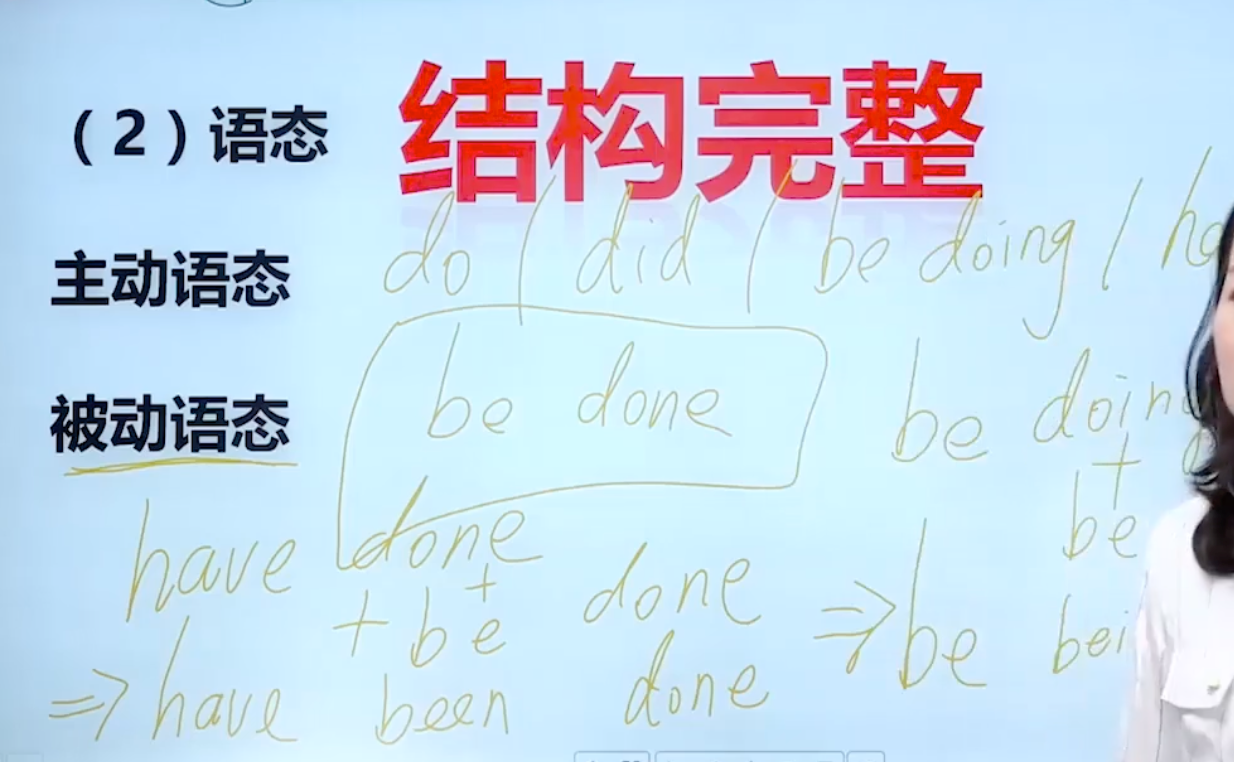 （2）语态 结构完整
主动语态 do / did / be doing /
被动语态 be done be doing
+
have done be
+
+ be done ⇒ be
⇒ have been done